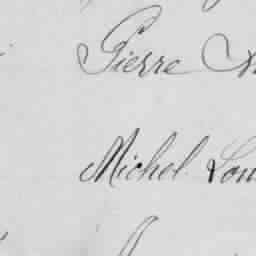 Pierre
Michel Lou